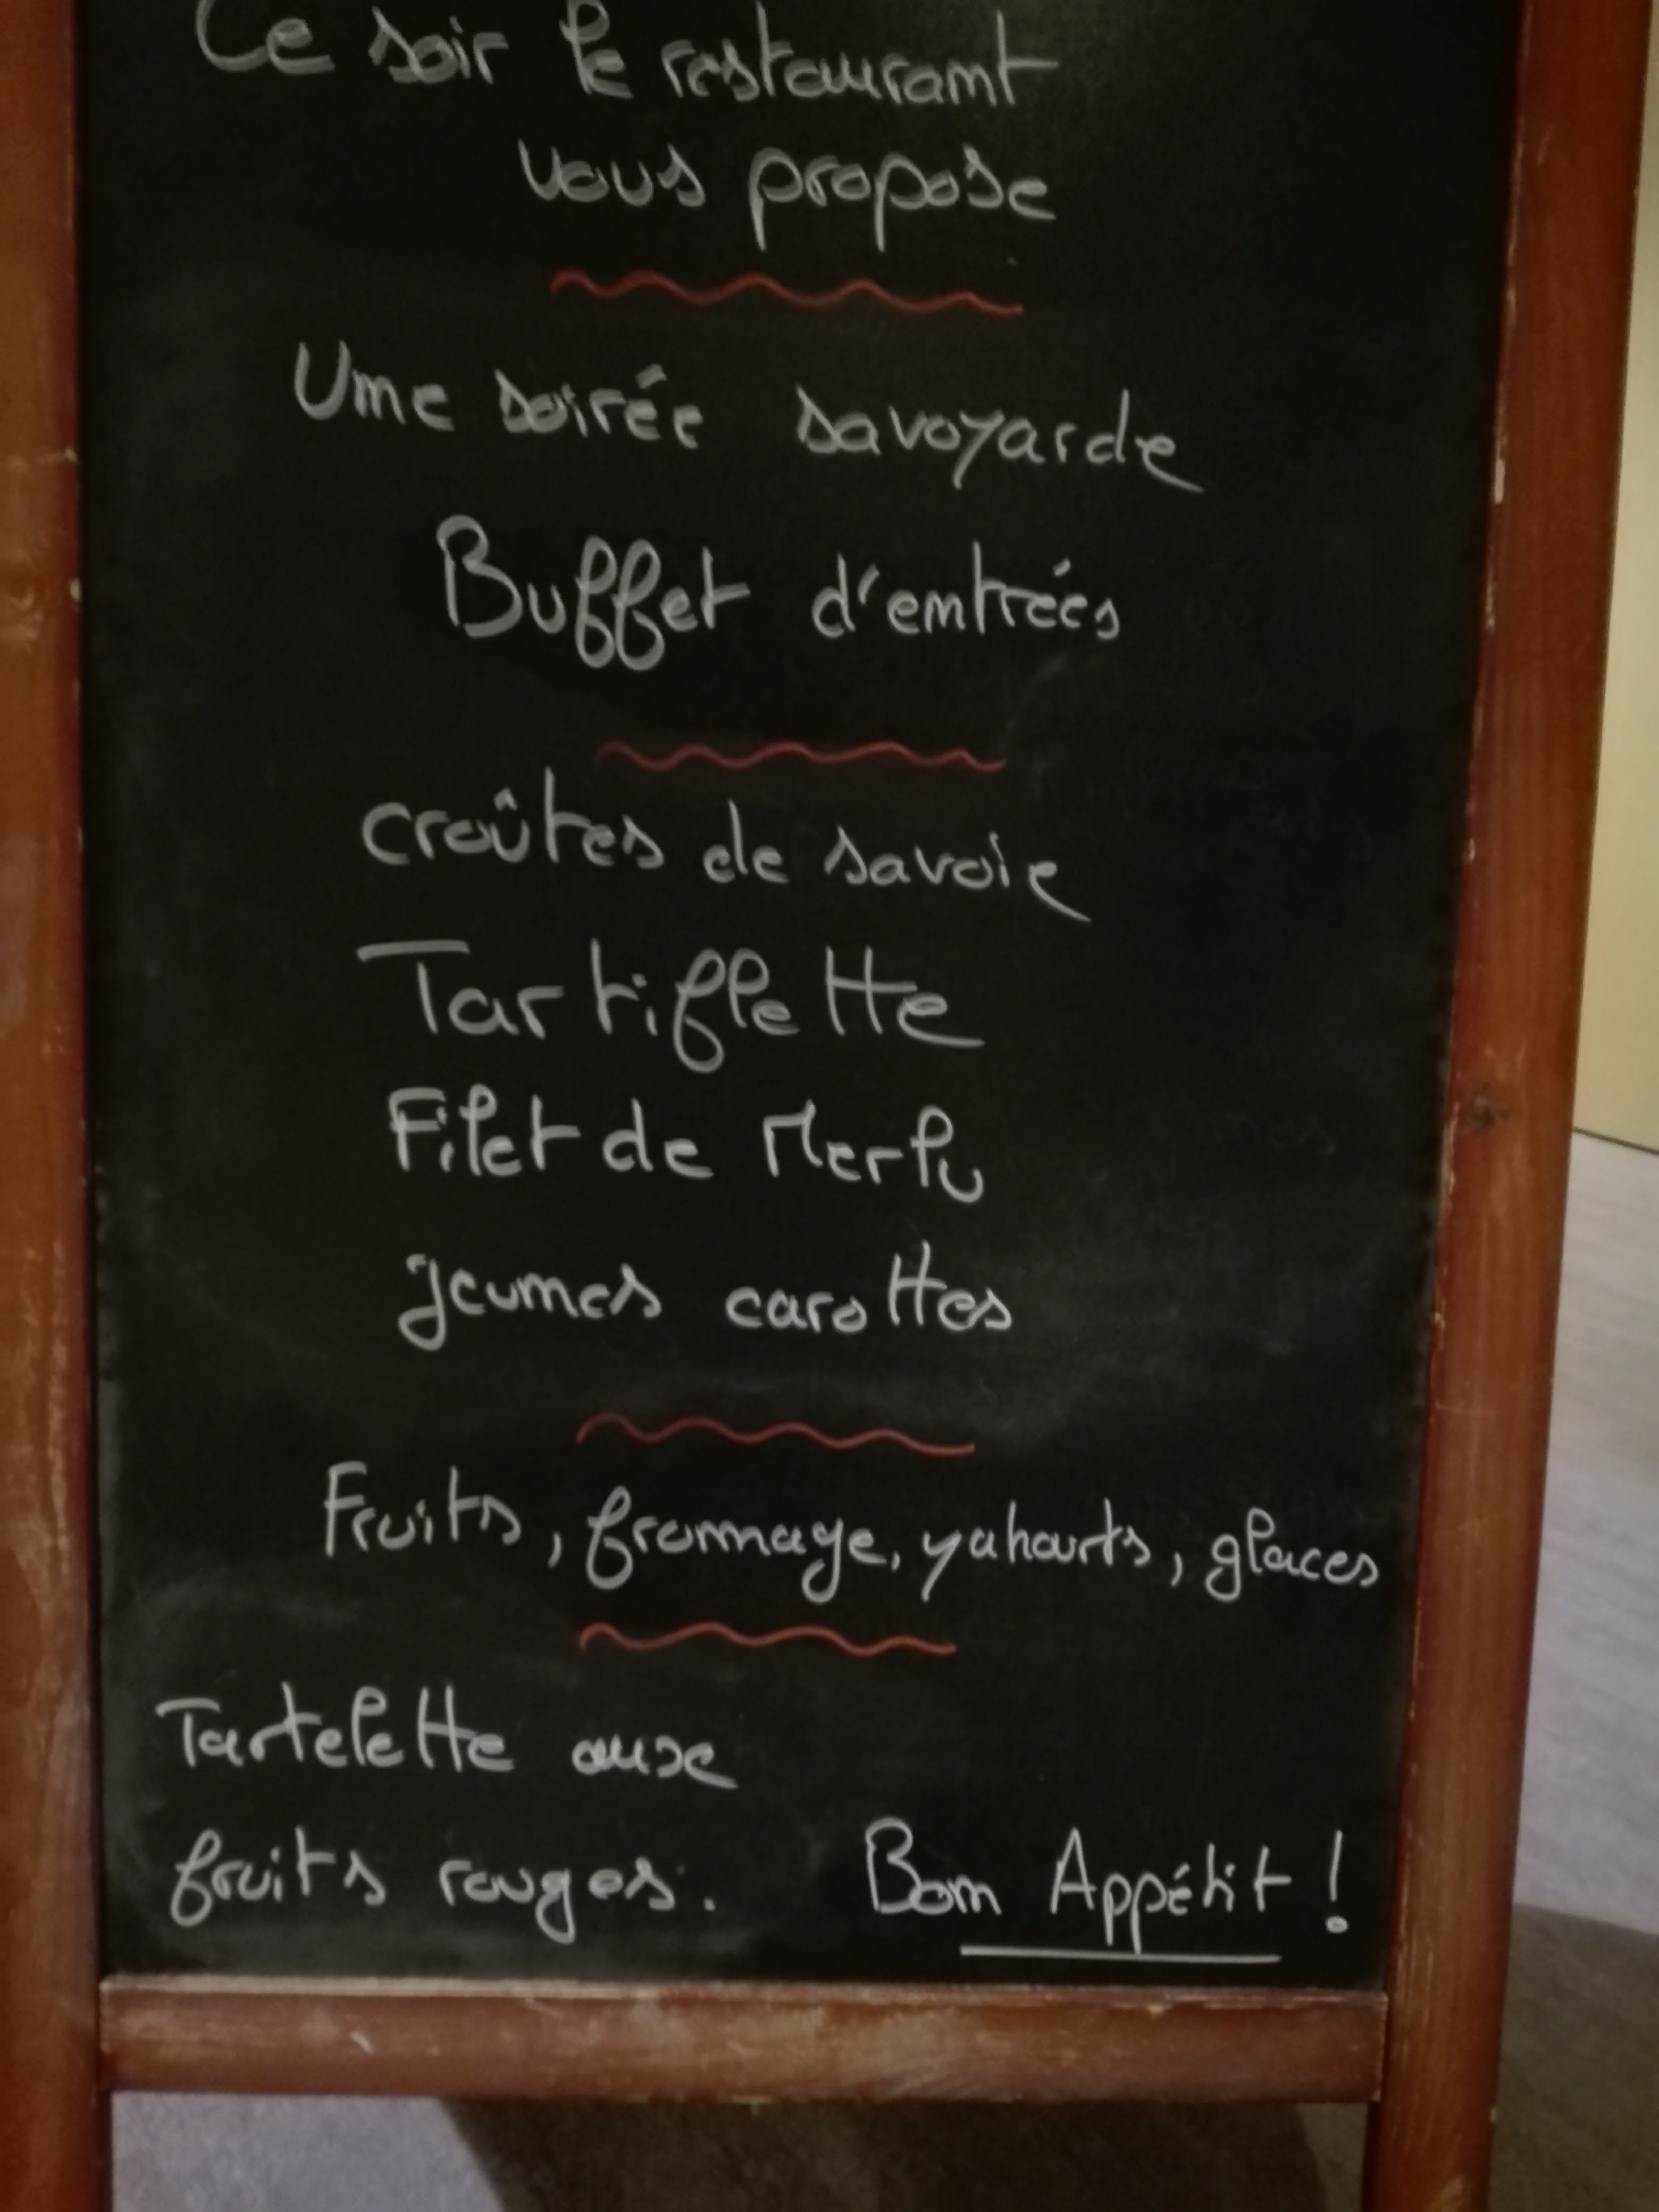 Ce soir le restaurant
vous propose
Une soirée savoyarde
Buffet d'entrées
croûtes de savoie
Tartiflette
Filet de Merlu
jeunes carottes
Fruits, fromage, yahourts, glaces
Tartelette aux
fruits rouges.
Bon Appétit !